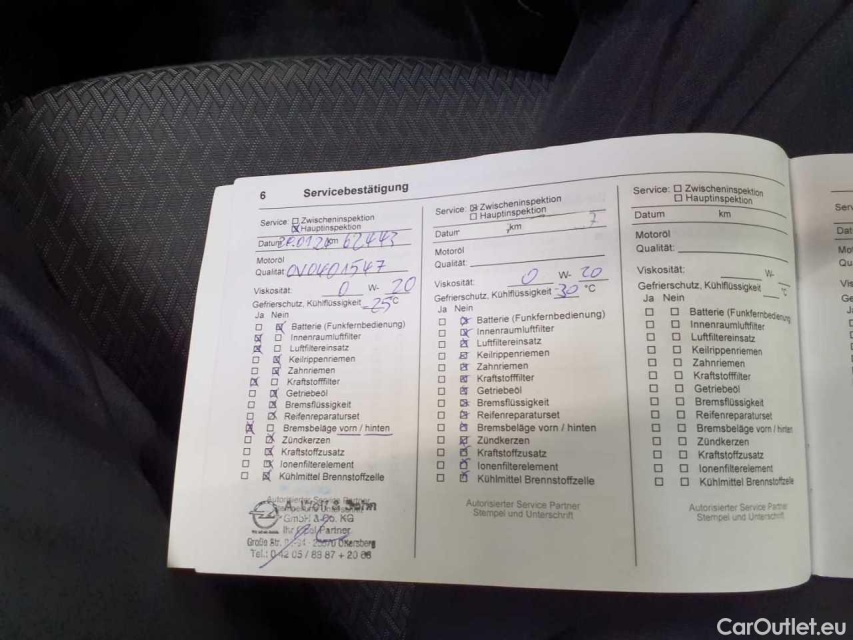 6 Servicebestätigung
Service: Zwischeninspektion
Hauptinspektion
Datum km 62443
Motoröl
Qualität OV0401547
Viskosität: 0 W- 20
Gefrierschutz, Kühlflüssigkeit -25 °C
Ja Nein
Batterie (Funkfernbedienung)
Innenraumluftfilter
Luftfiltereinsatz
Keilrippenriemen
Zahnriemen
Kraftstofffilter
Getriebeöl
Bremsflüssigkeit
Reifenreparaturset
Bremsbeläge vorn / hinten
Zündkerzen
Kraftstoffzusatz
Ionenfilterelement
Kühlmittel Brennstoffzelle
Autorisierter Service Partner
& Sohn
GmbH & Co. KG
Ihr Opel Partner
Große Str.
Tel.: 0 42 05 /
Service: Zwischeninspektion
Hauptinspektion
Datum km
Motoröl
Qualität:
Viskosität: 0 W- 20
Gefrierschutz, Kühlflüssigkeit 30 °C
Ja Nein
Batterie (Funkfernbedienung)
Innenraumluftfilter
Luftfiltereinsatz
Keilrippenriemen
Zahnriemen
Kraftstofffilter
Getriebeöl
Bremsflüssigkeit
Reifenreparaturset
Bremsbeläge vorn / hinten
Zündkerzen
Kraftstoffzusatz
Ionenfilterelement
Kühlmittel Brennstoffzelle
Autorisierter Service Partner
Stempel und Unterschrift
Service: Zwischeninspektion
Hauptinspektion
Datum km
Motoröl
Qualität:
Viskosität: W-
Gefrierschutz, Kühlflüssigkeit °C
Ja Nein
Batterie (Funkfernbedienung)
Innenraumluftfilter
Luftfiltereinsatz
Keilrippenriemen
Zahnriemen
Kraftstofffilter
Getriebeöl
Bremsflüssigkeit
Reifenreparaturset
Bremsbeläge vorn / hinten
Zündkerzen
Kraftstoffzusatz
Ionenfilterelement
Kühlmittel Brennstoffzelle
Autorisierter Service Partner
Stempel und Unterschrift
CarOutlet.eu